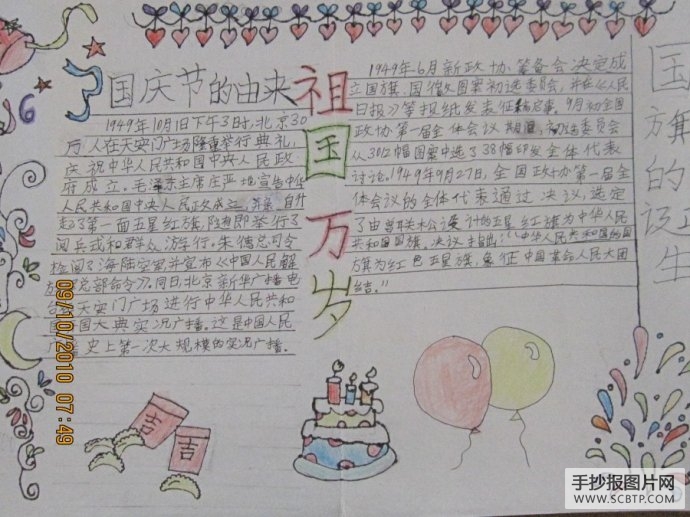 国庆节的由来
1949年10月1日下午3时,北京30
万人在天安门广场隆重举行典礼,
庆祝中华人民共和国中央人民政
府成立。毛泽东主席庄严地宣告中华
人民共和国中央人民政府成立,并亲自升
起了第一面五星红旗,随即举行了
阅兵式和群众游行,朱德总司令
检阅了海陆空军,并宣布《中国人民解
放 总部命令》。同日北京新华广播电
天安门广场进行中华人民共和
国大典实况广播。这是中国人民
广 史上第一次大规模的实况广播。
祖
国
万
岁
1949年6月新政协筹备会决定成
立国旗,国徽图案初选委员会,并在《人民
日报》等报纸发表征稿启事。9月初全国
政协第一届全体会议期间,初选委员会
从3012幅图案中选了38幅印发全体代表
讨论。1949年9月27日,全国政协第一届全
体会议的全体代表通过决议,选定
了由曾联松设计的五星红旗为中华人民
共和国国旗。决议指出:“中华人民共和国的国
旗为红色五星旗,象征中国革命人民大团
结。”
国旗的诞生
吉
吉
09/10/2010 07:49
手抄报图片网
WWW.SCBTP.COM